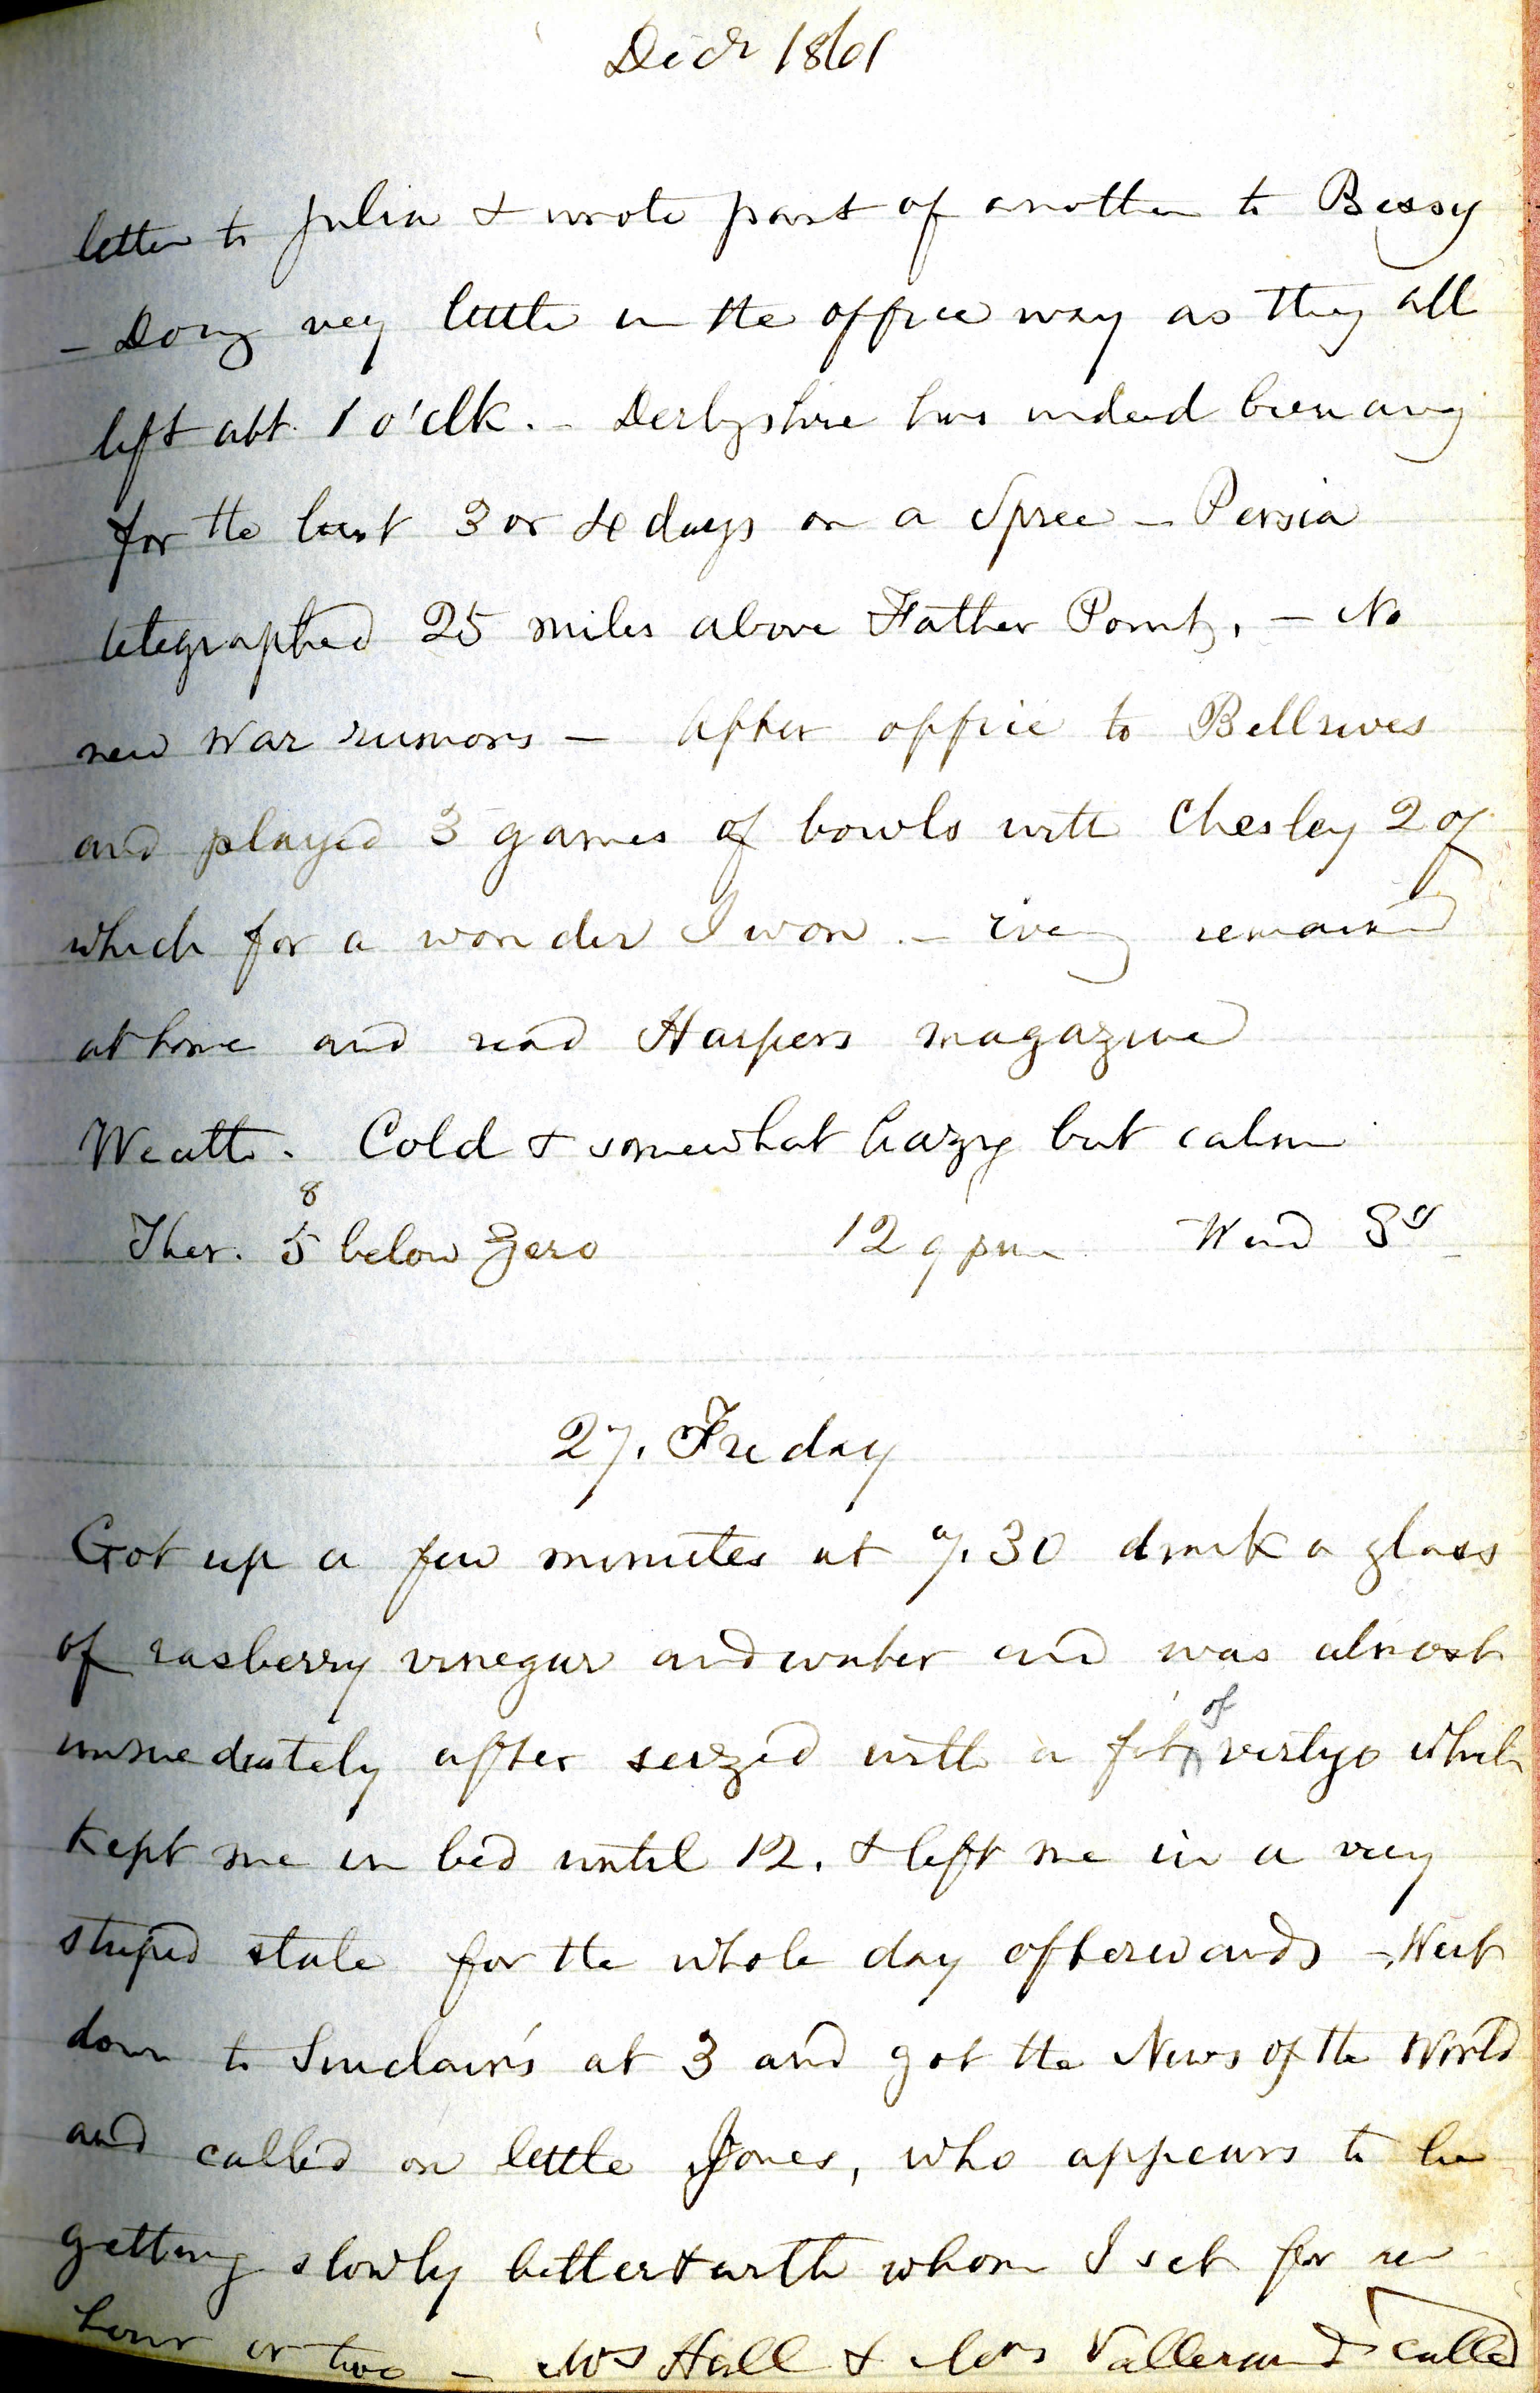 Decr 1861
letter to Julia & wrote part of another to Bessy
- Doing very little in the office way as they all
left abt. 1 o'clk. - Derbyshire has indeed been away
for the last 3 or 4 days on a Spree - Persia
telegraphed 25 miles above Father Point. - No
new War rumors - After office to Bellrives
and played 3 games of bowls with Chesley 2 of
which for a wonder I won - Eveng remained
at home and read Harpers magazine
Weathr. Cold & somewhat hazy but calm
8
Ther. 5 below Zero 12 9 pm Wind
27. Friday
Got up a few minutes at 7.30 drank a glass
of rasberry vinegar and water and was almost
of
immediately after seized with a fit vertigo which
kept me in bed until 12. & left me in a very
stupid state for the whole day afterwards - Went
down to Sinclair's at 3 and got the News of the World
and called on little Jones, who appears to be
getting slowly better & with whom I sat for an
hour or two - Mrs Hall & Mrs Vallerand called